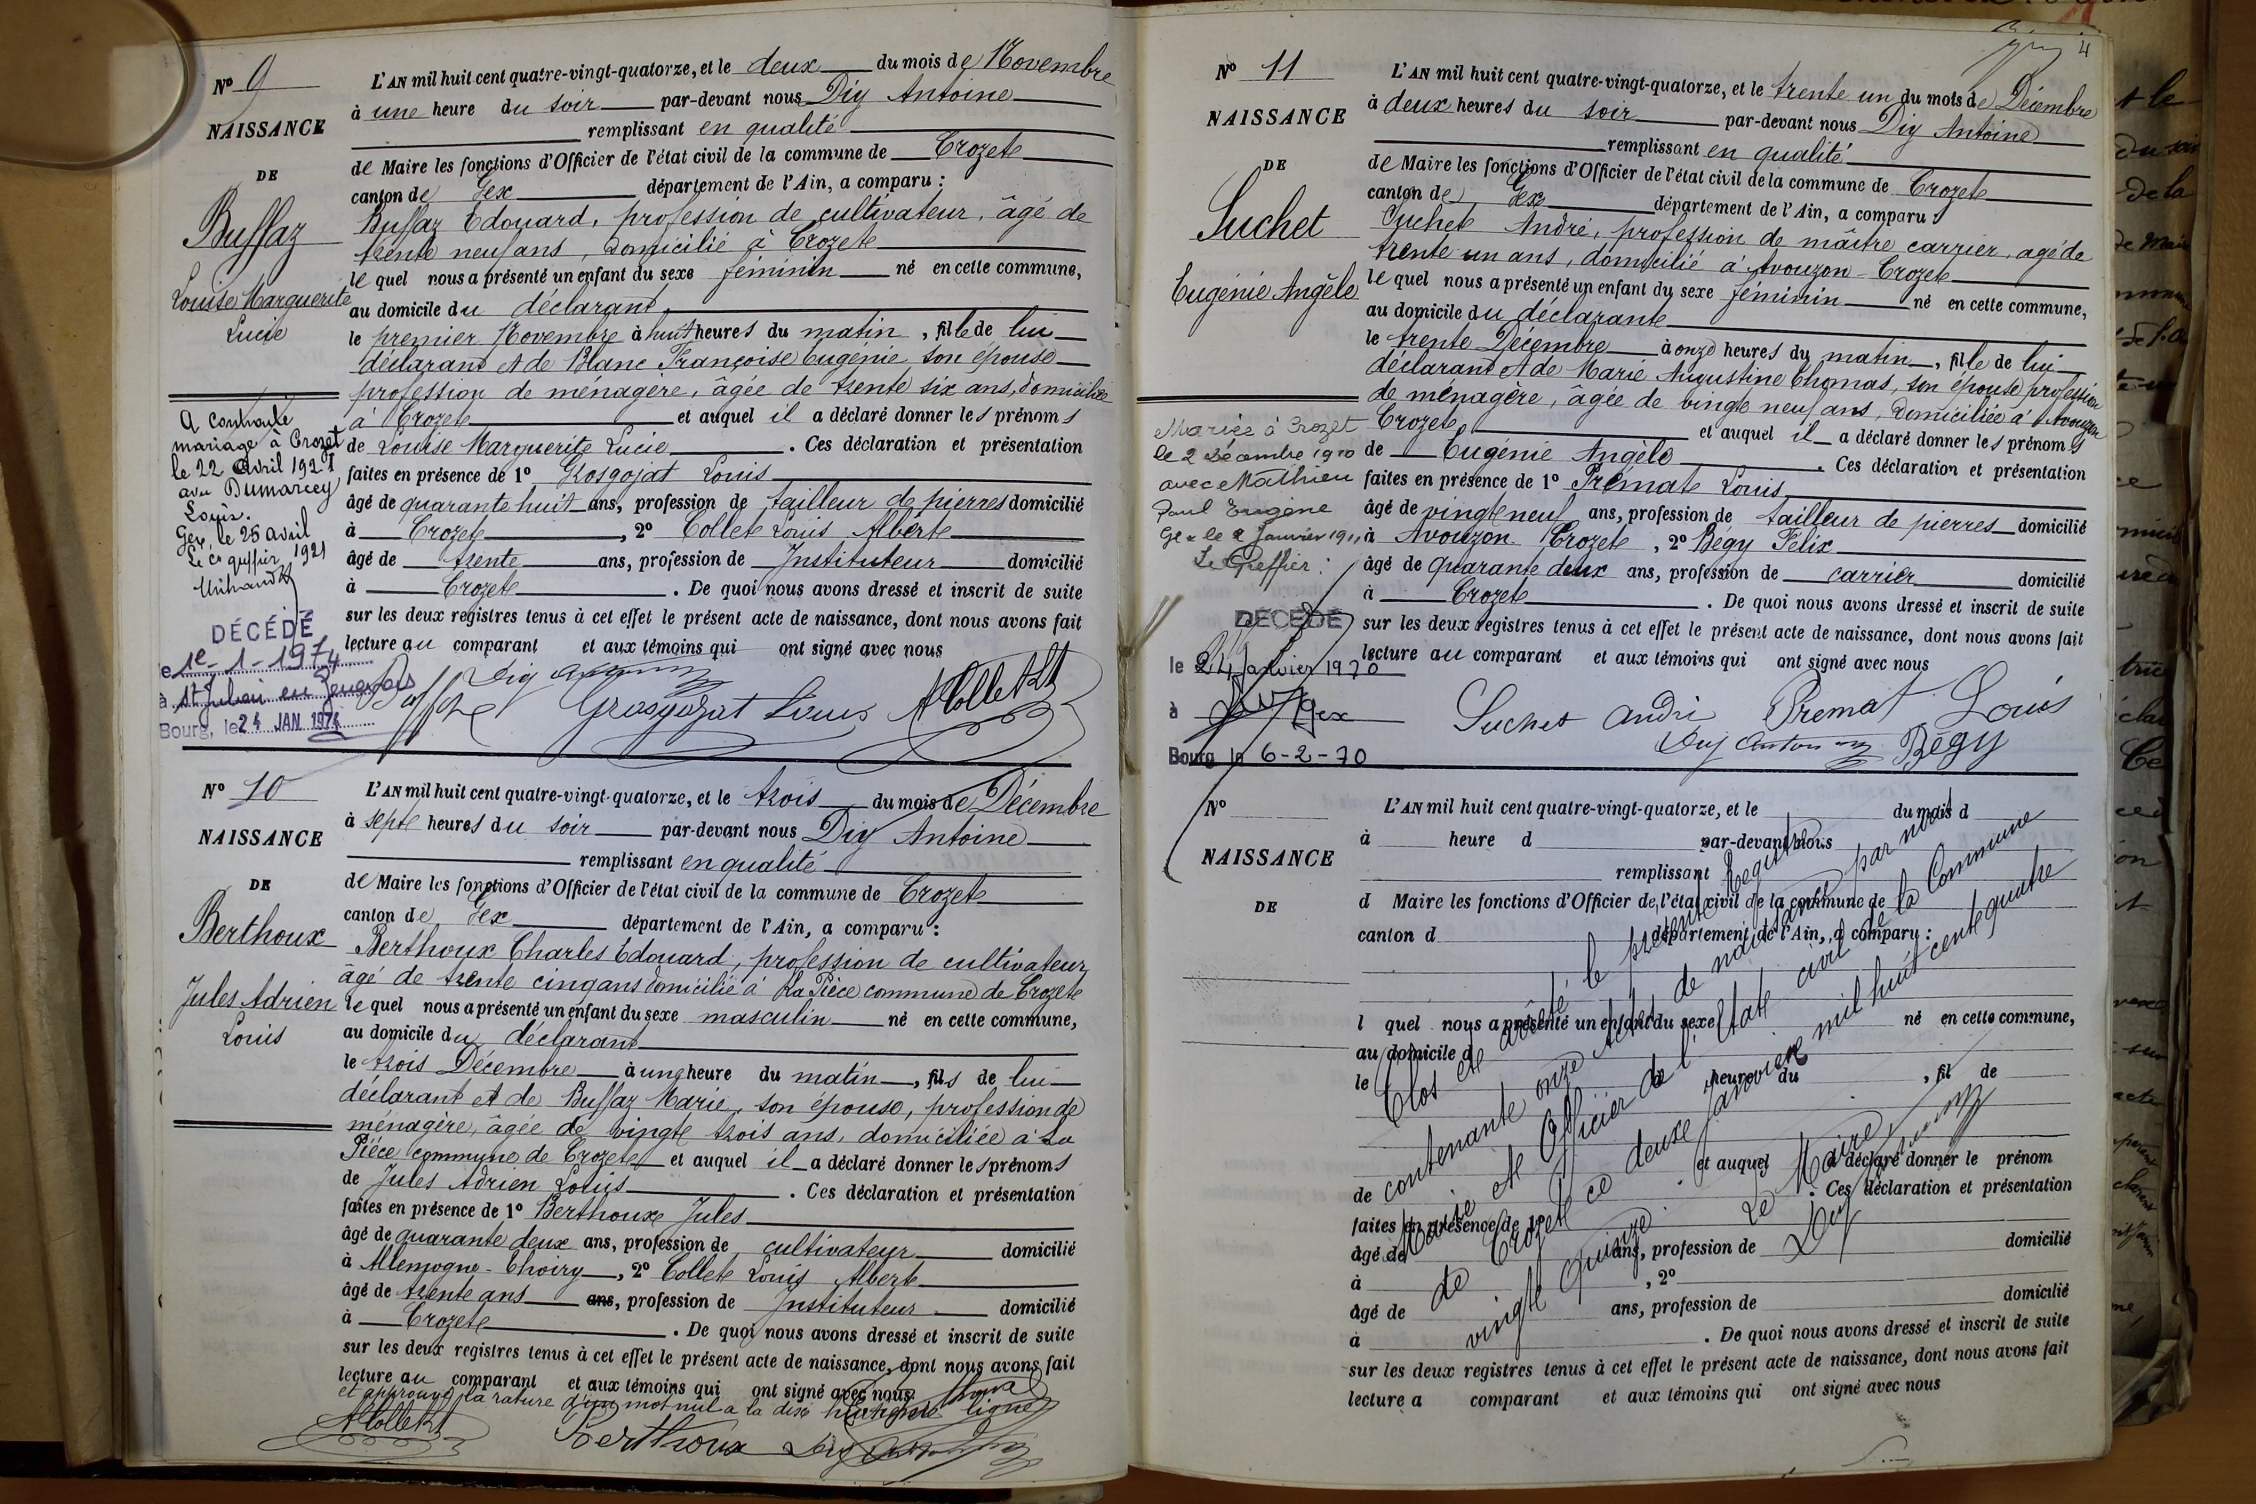 Nº 9
NAISSANCE
DE
Buffaz
Louise Marguerite
Lucie
A contracté
mariage à Crozet
le 22 avril 1921
avec Dumarcey
Louis.
Gex, le 25 avril
1921
Le Cs greffier
DÉCÉDÉ
le 1e-1-1974
à St Julien en Genevois
Bourg, le 24 JAN. 1974
L'AN mil huit cent quatre-vingt-quatorze, et le deux du mois de Novembre
à une heure du soir par-devant nous Dig Antoine
remplissant en qualité
de Maire les fonctions d'Officier de l'état civil de la commune de Crozet
canton de Gex département de l'Ain, a comparu :
Buffaz Edouard, profession de cultivateur, âgé de
trente neuf ans, domicilié à Crozet
le quel nous a présenté un enfant du sexe féminin né en cette commune,
au domicile du déclarant,
le premier Novembre à huit heures du matin, fille de lui
déclarant et de Blanc Françoise Eugénie son épouse
profession de ménagère, âgée de trente six ans, domiciliée
à Crozet et auquel il a déclaré donner les prénoms
de Louise Marguerite Lucie. Ces déclaration et présentation
faites en présence de 1º Grosgojat Louis
âgé de quarante huit ans, profession de tailleur de pierres domicilié
à Crozet, 2º Collet Louis Albert
âgé de trente ans, profession de Instituteur domicilié
à Crozet. De quoi nous avons dressé et inscrit de suite
sur les deux registres tenus à cet effet le présent acte de naissance, dont nous avons fait
lecture au comparant et aux témoins qui ont signé avec nous
Dig Antoine
Buffaz Grosgojat Louis A Collet
Nº 10
NAISSANCE
DE
Berthoux
Jules Adrien
Louis
L'AN mil huit cent quatre-vingt-quatorze, et le trois du mois de Décembre
à sept heures du soir par-devant nous Dig Antoine
remplissant en qualité
de Maire les fonctions d'Officier de l'état civil de la commune de Crozet
canton de Gex département de l'Ain, a comparu :
Berthoux Charles Edouard, profession de cultivateur
âgé de trente cinq ans domicilié à La Pièce commune de Crozet
le quel nous a présenté un enfant du sexe masculin né en cette commune,
au domicile du déclarant
le trois Décembre à une heure du matin, fils de lui
déclarant et de Buffaz Marie, son épouse, profession de
ménagère, âgée de vingt trois ans, domiciliée à La
Pièce commune de Crozet et auquel il a déclaré donner les prénoms
de Jules Adrien Louis. Ces déclaration et présentation
faites en présence de 1º Berthoux Jules
âgé de quarante deux ans, profession de cultivateur domicilié
à Allemogne - Thoiry, 2º Collet Louis Albert
âgé de trente ans ans, profession de Instituteur domicilié
à Crozet. De quoi nous avons dressé et inscrit de suite
sur les deux registres tenus à cet effet le présent acte de naissance, dont nous avons fait
lecture au comparant et aux témoins qui ont signé avec nous
et approuvé la rature d'un mot nul a la dix huitième ligne
A Collet Berthoux Dig Antoine
4
Nº 11
NAISSANCE
DE
Suchet
Eugénie Angèle
Mariée à Crozet
le 2 Décembre 1910
avec Mathieu
Paul Eugène
Gex le 2 Janvier 1911
Le Greffier :
DÉCÉDÉ
le 24 Janvier 1970
à Gex
Bourg le 6-2-70
L'AN mil huit cent quatre-vingt-quatorze, et le trente un du mois de Décembre
à deux heures du soir par-devant nous Dig Antoine
remplissant en qualité
de Maire les fonctions d'Officier de l'état civil de la commune de Crozet
canton de Gex département de l'Ain, a comparu :
Suchet André, profession de maître carrier, agé de
trente un ans, domicilié à Avouzon - Crozet
le quel nous a présenté un enfant du sexe féminin né en cette commune,
au domicile du déclarant
le trente Décembre à onze heures du matin, fille de lui
déclarant et de Marie Augustine Thomas, son épouse profession
de ménagère, âgée de vingt neuf ans, domiciliée à Avouzon
Crozet et auquel il a déclaré donner les prénoms
de Eugénie Angèle. Ces déclaration et présentation
faites en présence de 1º Prémat Louis
âgé de vingt neuf ans, profession de tailleur de pierres domicilié
à Avouzon Crozet, 2º Bégy Félix
âgé de quarante deux ans, profession de carrier domicilié
à Crozet. De quoi nous avons dressé et inscrit de suite
sur les deux registres tenus à cet effet le présent acte de naissance, dont nous avons fait
lecture au comparant et aux témoins qui ont signé avec nous
Suchet André Premat Louis
Dig Antoine Bégy
Nº
NAISSANCE
DE
L'AN mil huit cent quatre-vingt-quatorze, et le du mois d
à heure d par-devant nous
remplissant
d Maire les fonctions d'Officier de l'état civil de la commune de
canton d département de l'Ain, a comparu :
l quel nous a présenté un enfant du sexe né en cette commune,
au domicile d
le heure du , fil de
et auquel a déclaré donner le prénom
de . Ces déclaration et présentation
faites en présence de 1º
âgé de ans, profession de domicilié
à , 2º
âgé de ans, profession de domicilié
à . De quoi nous avons dressé et inscrit de suite
sur les deux registres tenus à cet effet le présent acte de naissance, dont nous avons fait
lecture a comparant et aux témoins qui ont signé avec nous
Clos et arrêté le présent Registre
contenant onze actes de naissance par nous
Maire et Officier de l'état civil de la Commune
de Crozet ce deux Janvier mil huit cent quatre
vingt quinze.
Le Maire,
Dig Antoine